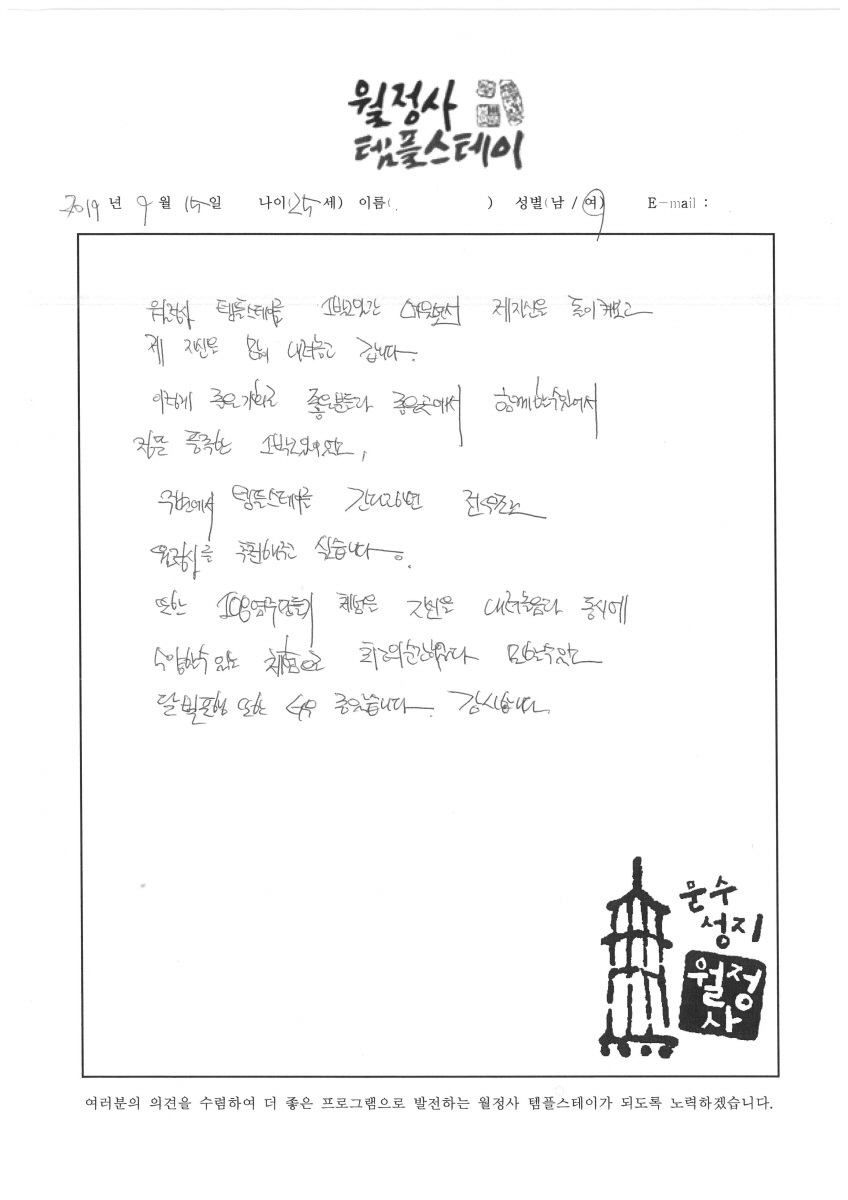 월정사
템플스테이
2019 년 9 월 15일 나이(25세) 이름( ) 성별(남 / 여) E-mail :
월정사 템플스테이를 1박2일간 머물면서 제자신을 돌이켜보고
제 자신을 많이 내려놓고 갑니다.
이렇게 좋은기회로 좋은분들과 좋은곳에서 함께할수있어서
정말 풍족한 1박2일이었고,
주변에서 템플스테이를 간다고하면 전
월정사를 추천해주고 싶습니다.
또한 108염주만들기 체험은 자신을 내려놓음과 동시에
수양할수 있는 체험으로 최고의순간이었다
달빛포행 또한 너무 좋았습니다. 감사합니다.
문수
성지
월정
사
여러분의 의견을 수렴하여 더 좋은 프로그램으로 발전하는 월정사 템플스테이가 되도록 노력하겠습니다.